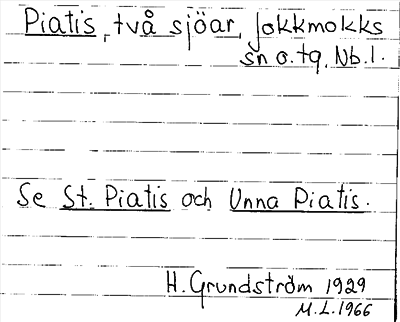 Piatis, två sjöar, Jokkmokks
sn o. tg, Nb. l.
Se St. Piatis och Unna Piatis.
H. Grundström 1929
M.L. 1966